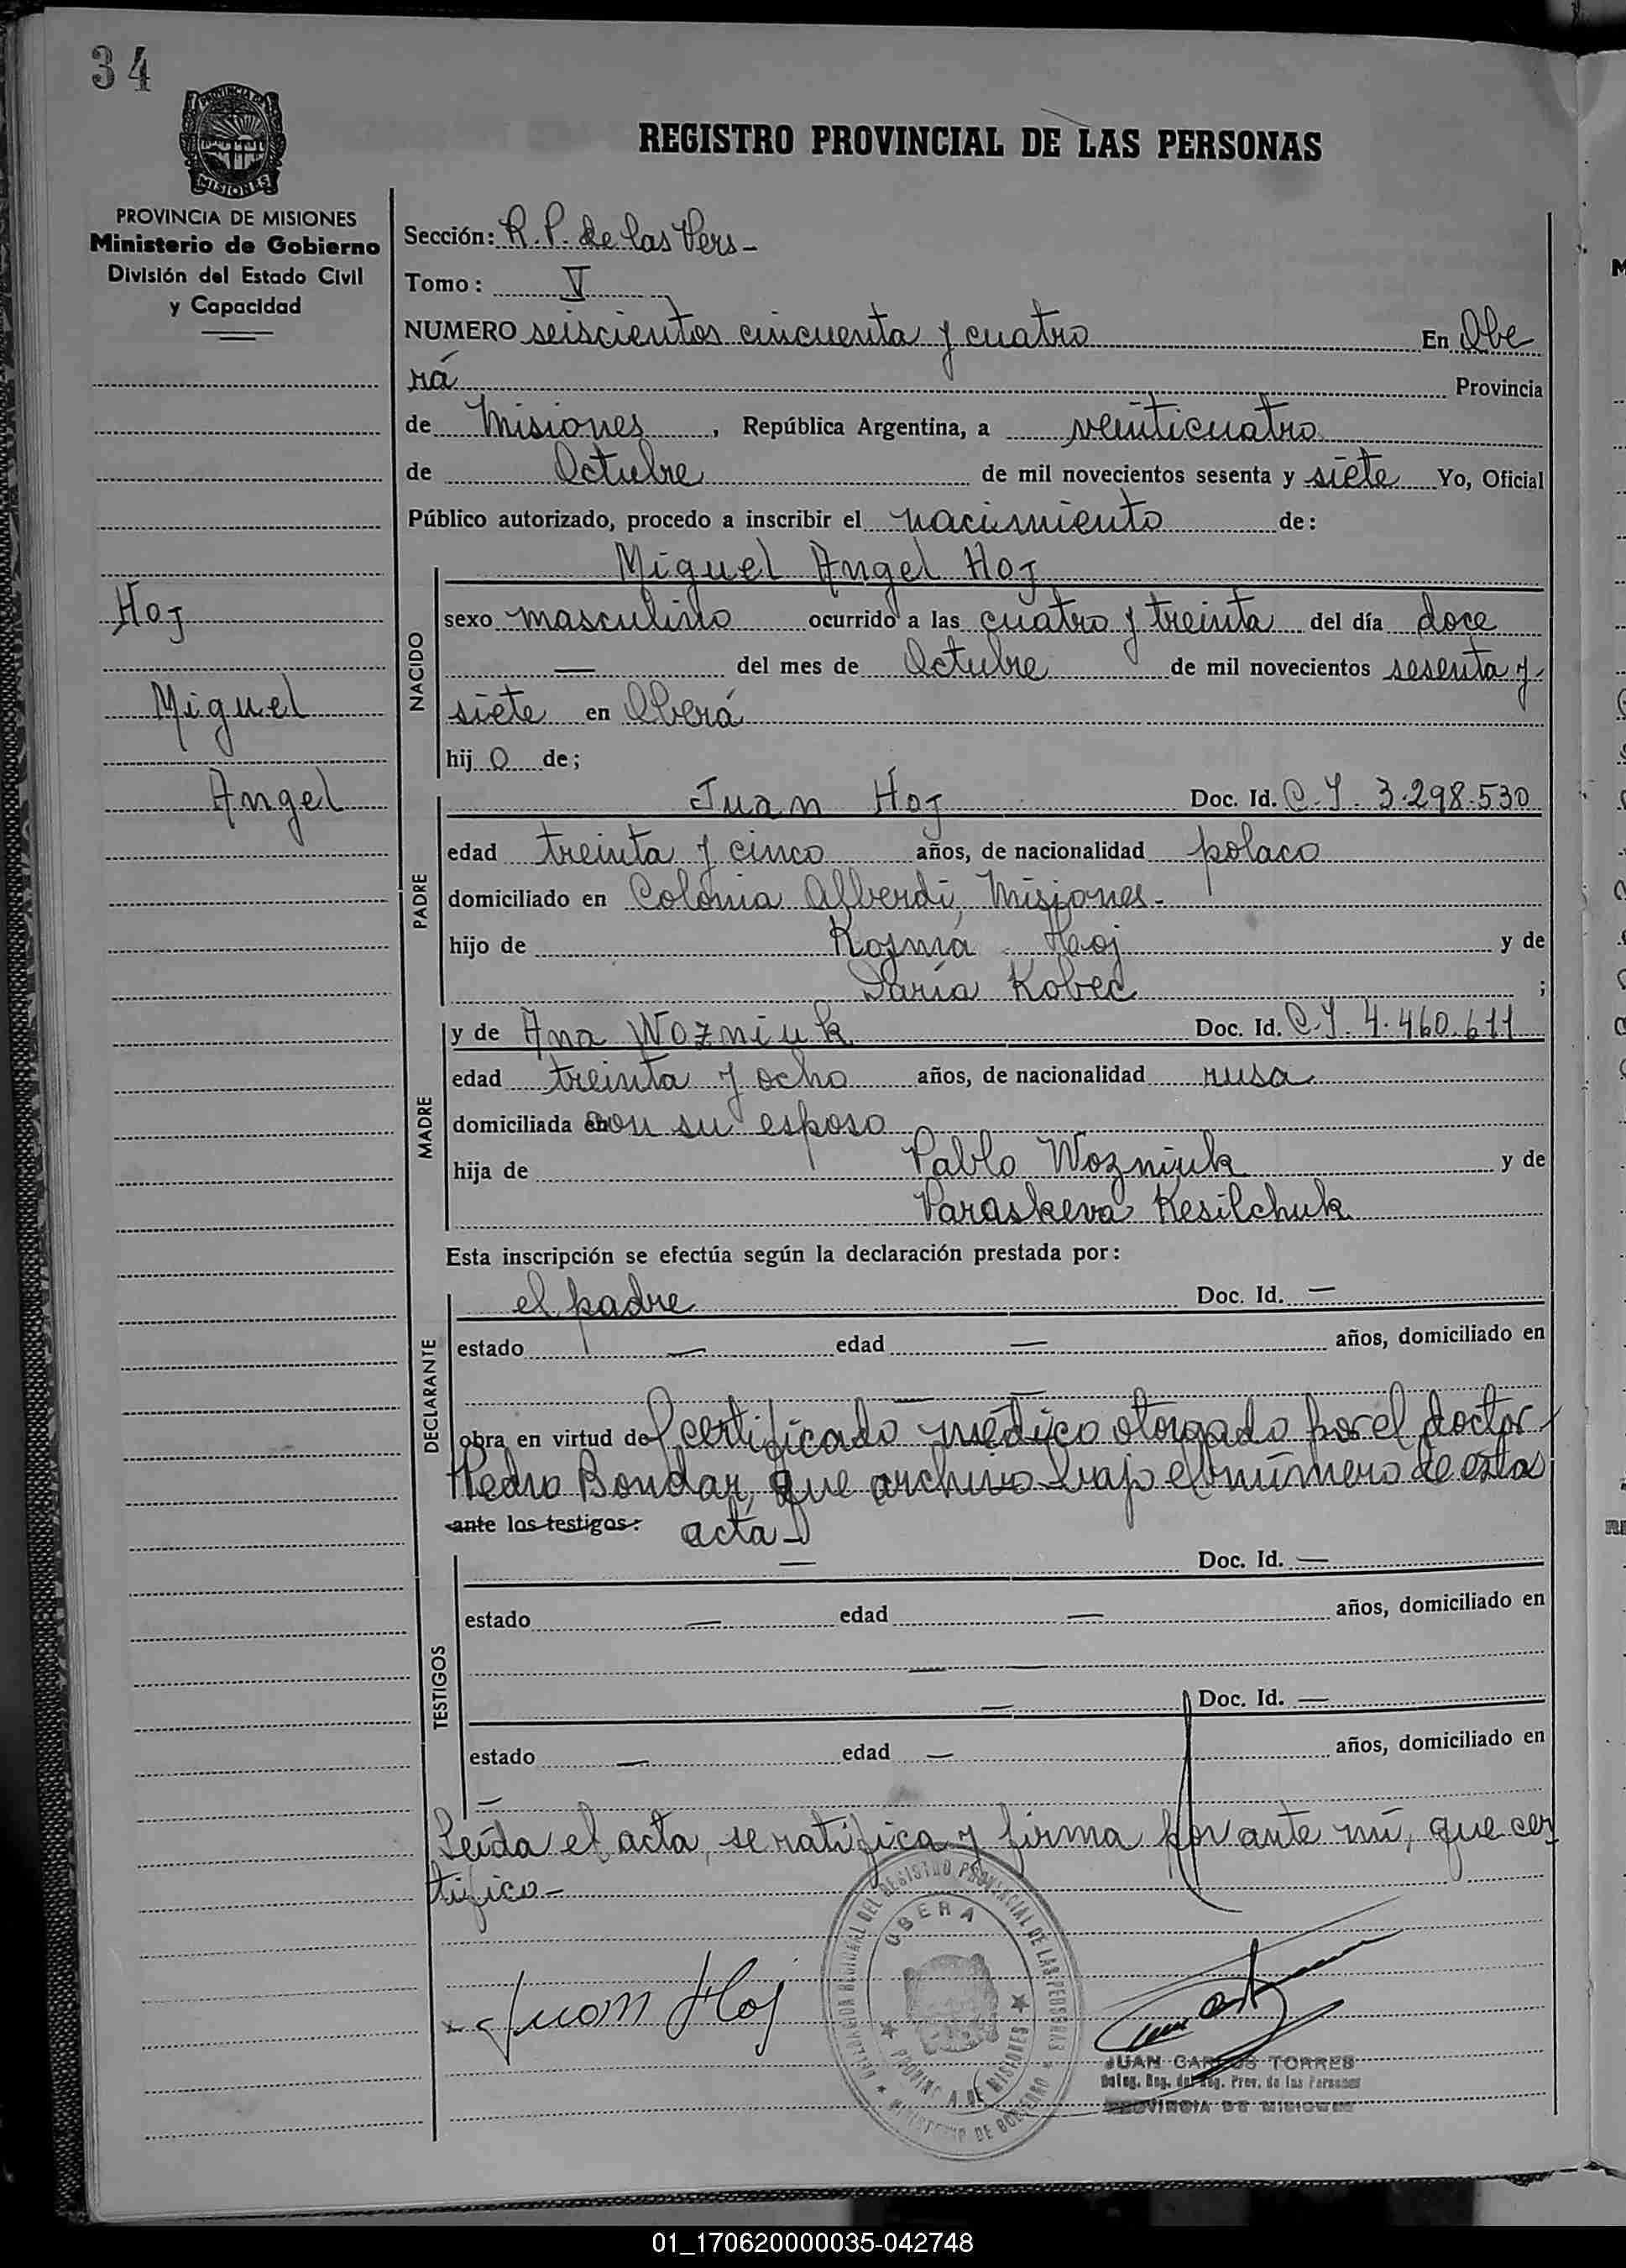 34
PROVINCIA DE
MISIONES
REGISTRO PROVINCIAL DE LAS PERSONAS
PROVINCIA DE MISIONES
Ministerio de Gobierno
División del Estado Civil
y Capacidad
Sección: R. P. de las Pers -
Tomo: V
NUMERO seiscientos cincuenta y cuatro En Obe
rá Provincia
de Misiones, República Argentina, a veinticuatro
de Octubre de mil novecientos sesenta y siete Yo, Oficial
Público autorizado, procedo a inscribir el nacimiento de:
Miguel Angel Hoj
Hoj
Miguel
Angel
NACIDO
sexo masculino ocurrido a las cuatro y treinta del día doce
— del mes de Octubre de mil novecientos sesenta y
siete en Oberá
hijo de;
PADRE
Juan Hoj Doc. Id. C. I. 3.298.530
edad treinta y cinco años, de nacionalidad polaco
domiciliado en Colonia Alberdi, Misiones -
hijo de Kosma Hoj y de
Daría Kobec ;
MADRE
y de Ana Wozniuk Doc. Id. C. I. 4.460.611
edad treinta y ocho años, de nacionalidad rusa
domiciliada con su esposo
hija de Pablo Wozniuk y de
Paraskeva Kesilchuk
Esta inscripción se efectúa según la declaración prestada por:
DECLARANTE
el padre Doc. Id. —
estado — edad — años, domiciliado en
— —
obra en virtud del certificado médico otorgado por el doctor
Pedro Bondar, que archivo bajo el número de esta
ante los testigos: acta -
TESTIGOS
— Doc. Id. —
estado — edad — años, domiciliado en
— —
— Doc. Id. —
estado — edad — años, domiciliado en
—
Leída el acta, se ratifica y firma por ante mí, que cer
tifico -
x Juan Hoj
DELEGACION REGIONAL DEL REGISTRO PROVINCIAL DE LAS PERSONAS
OBERA
PROVINCIA DE MISIONES
MINISTERIO DE GOBIERNO
JUAN CARLOS TORRES
Deleg. Reg. del Reg. Prov. de las Personas
PROVINCIA DE MISIONES
01_170620000035-042748